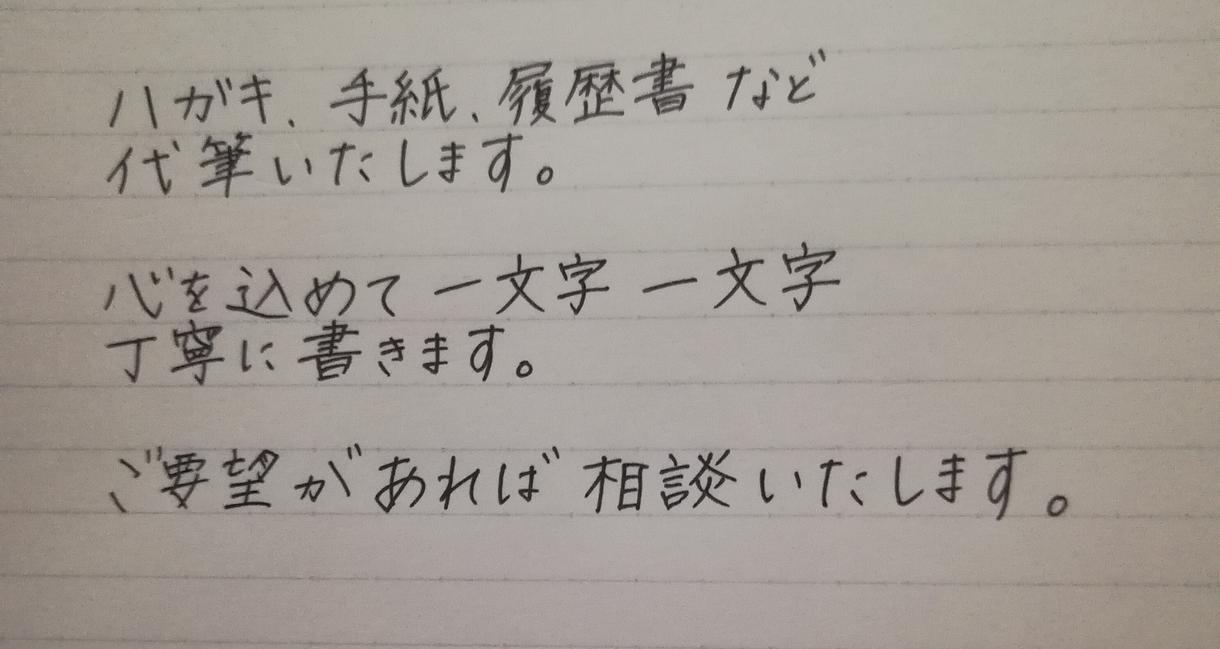 ハガキ、手紙、履歴書 など
代筆いたします。
心を込めて一文字 一文字
丁寧に書きます。
ご要望があれば 相談いたします。